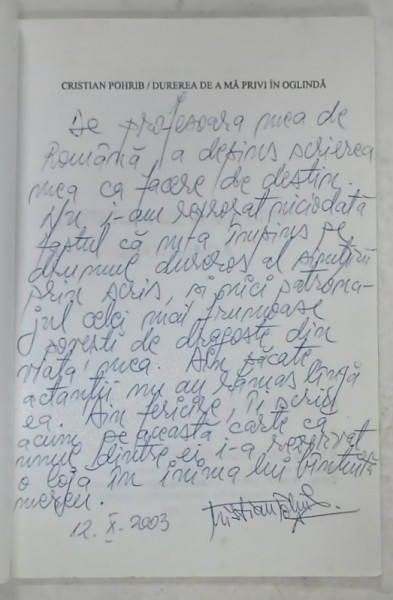 CRISTIAN POHRIB / DUREREA DE A MĂ PRIVI ÎN OGLINDĂ
De profesoara mea de
Română a depins scrierea
mea ca facere de destin.
Nu i-am reproșat niciodată
faptul că m-a împins pe
drumul dureros al simțirii
prin scris, și nici patrona-
jul celei mai frumoase
povești de dragoste din
viața mea. Din păcate
actanții nu au rămas lîngă
ea. Din fericire, îi scriu
acum pe această carte că
unul dintre ei i-a rezervat
o lojă în inima lui bîntuită
mereu.
12. X. 2003
Cristian Pohrib